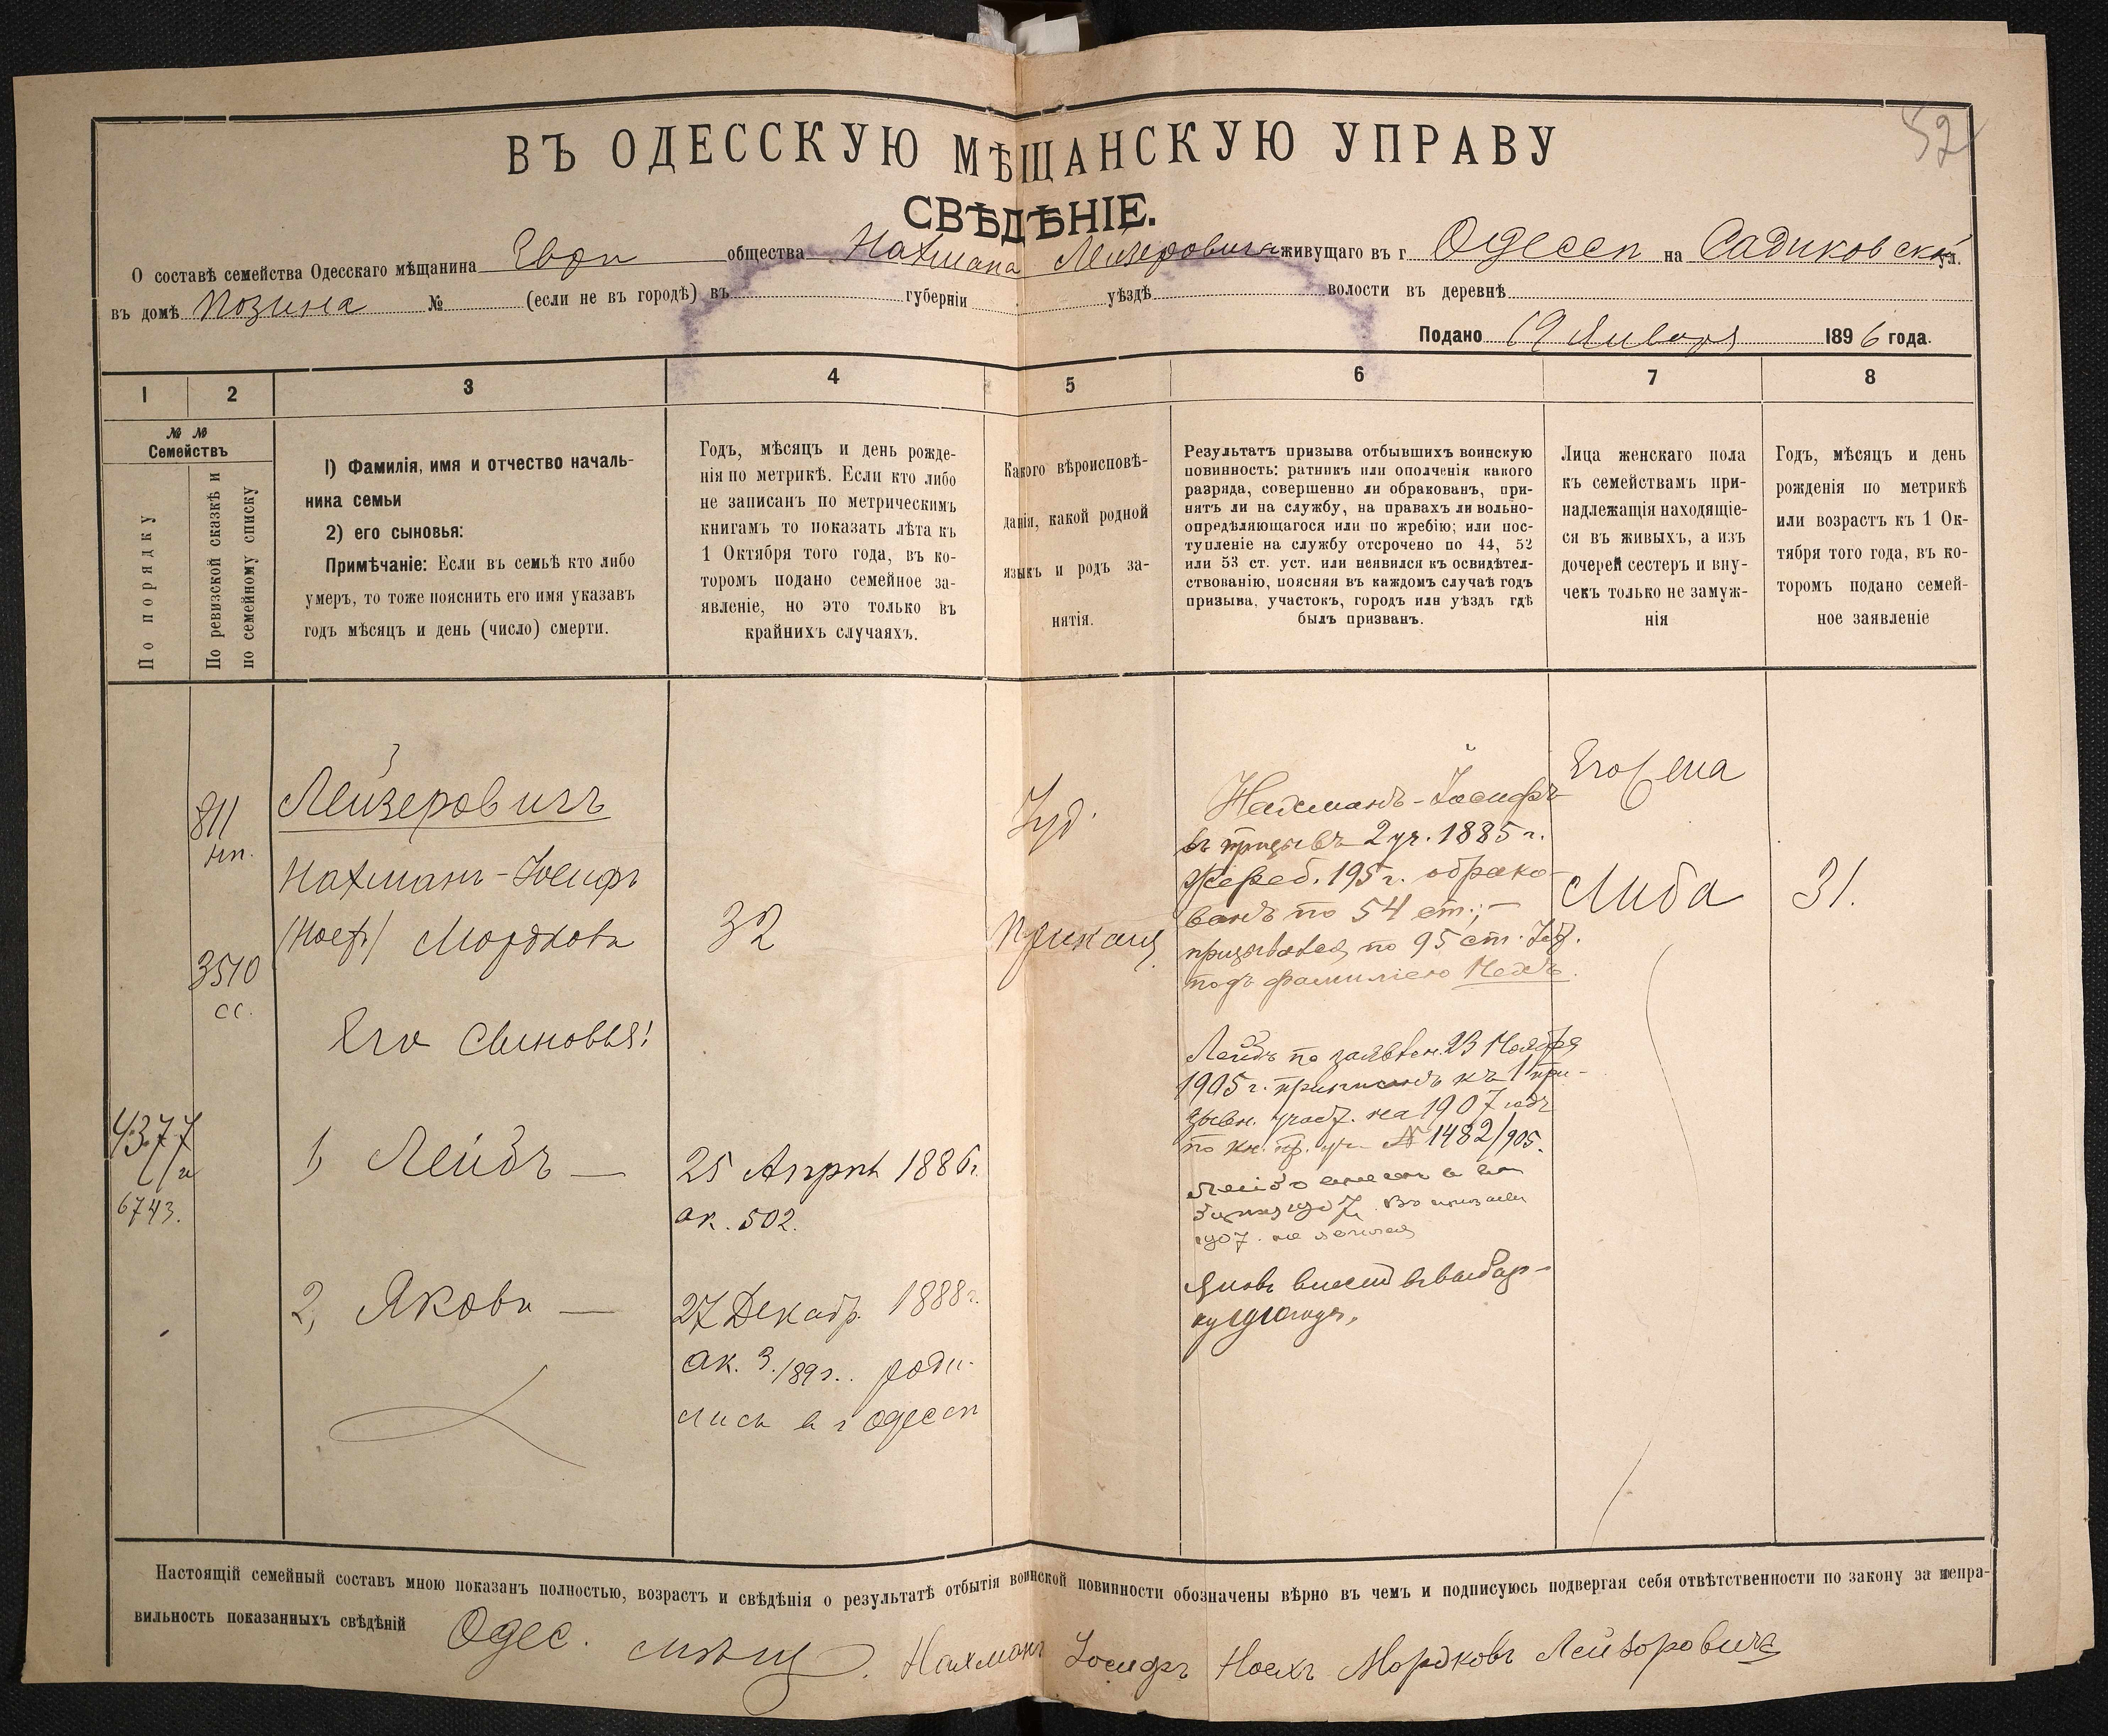 52
ВЪ ОДЕССКУЮ МѢЩАНСКУЮ УПРАВУ
СВѢДѢНІЕ.
О составѣ семейства Одесскаго мѣщанина Евр. общества Нахмана Лейзеровича живущаго въ г Одессѣ на Садиковской ул.
въ домѣ Позина № (если не въ городѣ) въ губерніи уѣздѣ волости въ деревнѣ
Подано 19 Января 1896 года.
1 2 3 4 5 6 7 8
№ №
Семействъ
По порядку
По ревизской сказкѣ и
по семейному списку
1) Фамилія, имя и отчество началь-
ника семьи
2) его сыновья:
Примѣчаніе: Если въ семьѣ кто либо
умеръ, то тоже пояснить его имя указавъ
годъ мѣсяцъ и день (число) смерти.
Годъ, мѣсяцъ и день рожде-
нія по метрикѣ. Если кто либо
не записанъ по метрическимъ
книгамъ то показать лѣта къ
1 Октября того года, въ ко-
торомъ подано семейное за-
явленіе, но это только въ
крайнихъ случаяхъ.
Какого вѣроисповѣ-
данія, какой родной
языкъ и родъ за-
нятія.
Результатъ призыва отбывшихъ воинскую
повинность: ратникъ или ополченія какого
разряда, совершенно ли обракованъ, при-
нятъ ли на службу, на правахъ ли вольно-
опредѣляющагося или по жребію; или пос-
тупленіе на службу отсрочено по 44, 52
или 53 ст. уст. или неявился къ освидѣтел-
ствованію, поясняя въ каждомъ случаѣ годъ
призыва, участокъ, городъ или уѣздъ гдѣ
былъ призванъ.
Лица женскаго пола
къ семействамъ при-
надлежащія находящіе-
ся въ живыхъ, а изъ
дочерей сестеръ и вну-
чекъ только не замуж-
нія
Годъ, мѣсяцъ и день
рожденія по метрикѣ
или возрастъ къ 1 Ок-
тября того года, въ ко-
торомъ подано семей-
ное заявленіе
811
3510
сс.
4377
6743.
Лейзеровичъ
Нахманъ-Іосифъ
Мордковъ
Его Сыновья:
1, Лейбъ —
2, Яковъ —
32
25 Апрѣл 1886 г.
ак. 502.
27 Декабр. 1888 г.
ак. 3./89 г. роди-
лись в г Одессѣ
Іуд.
Приказч.
Нахманъ-Іосифъ
въ призывъ 2 уч. 1885 г.
Жереб. 195 г. обрако-
ванъ по 54 ст.; —
призывался по 95 ст.
подъ фамиліею
Лейбъ по заявлен. 23 Ноября
1905 г. приписанъ къ 1 при-
зывн. участ. на 1907 годъ
по кн. пр. уч. № 1482/905.
1907. не явился
Яковъ внесенъ
Его жена
Либа
31.
Настоящій семейный составъ мною показанъ полностью, возрастъ и свѣдѣнія о результатѣ отбытія воинской повинности обозначены вѣрно въ чемъ и подписуюсь подвергая себя отвѣтственности по закону за непра-
вильность показанныхъ свѣдѣній Одес. мѣщ. Нахманъ Іосифъ Ноехъ Мордковъ Лейзоровичъ